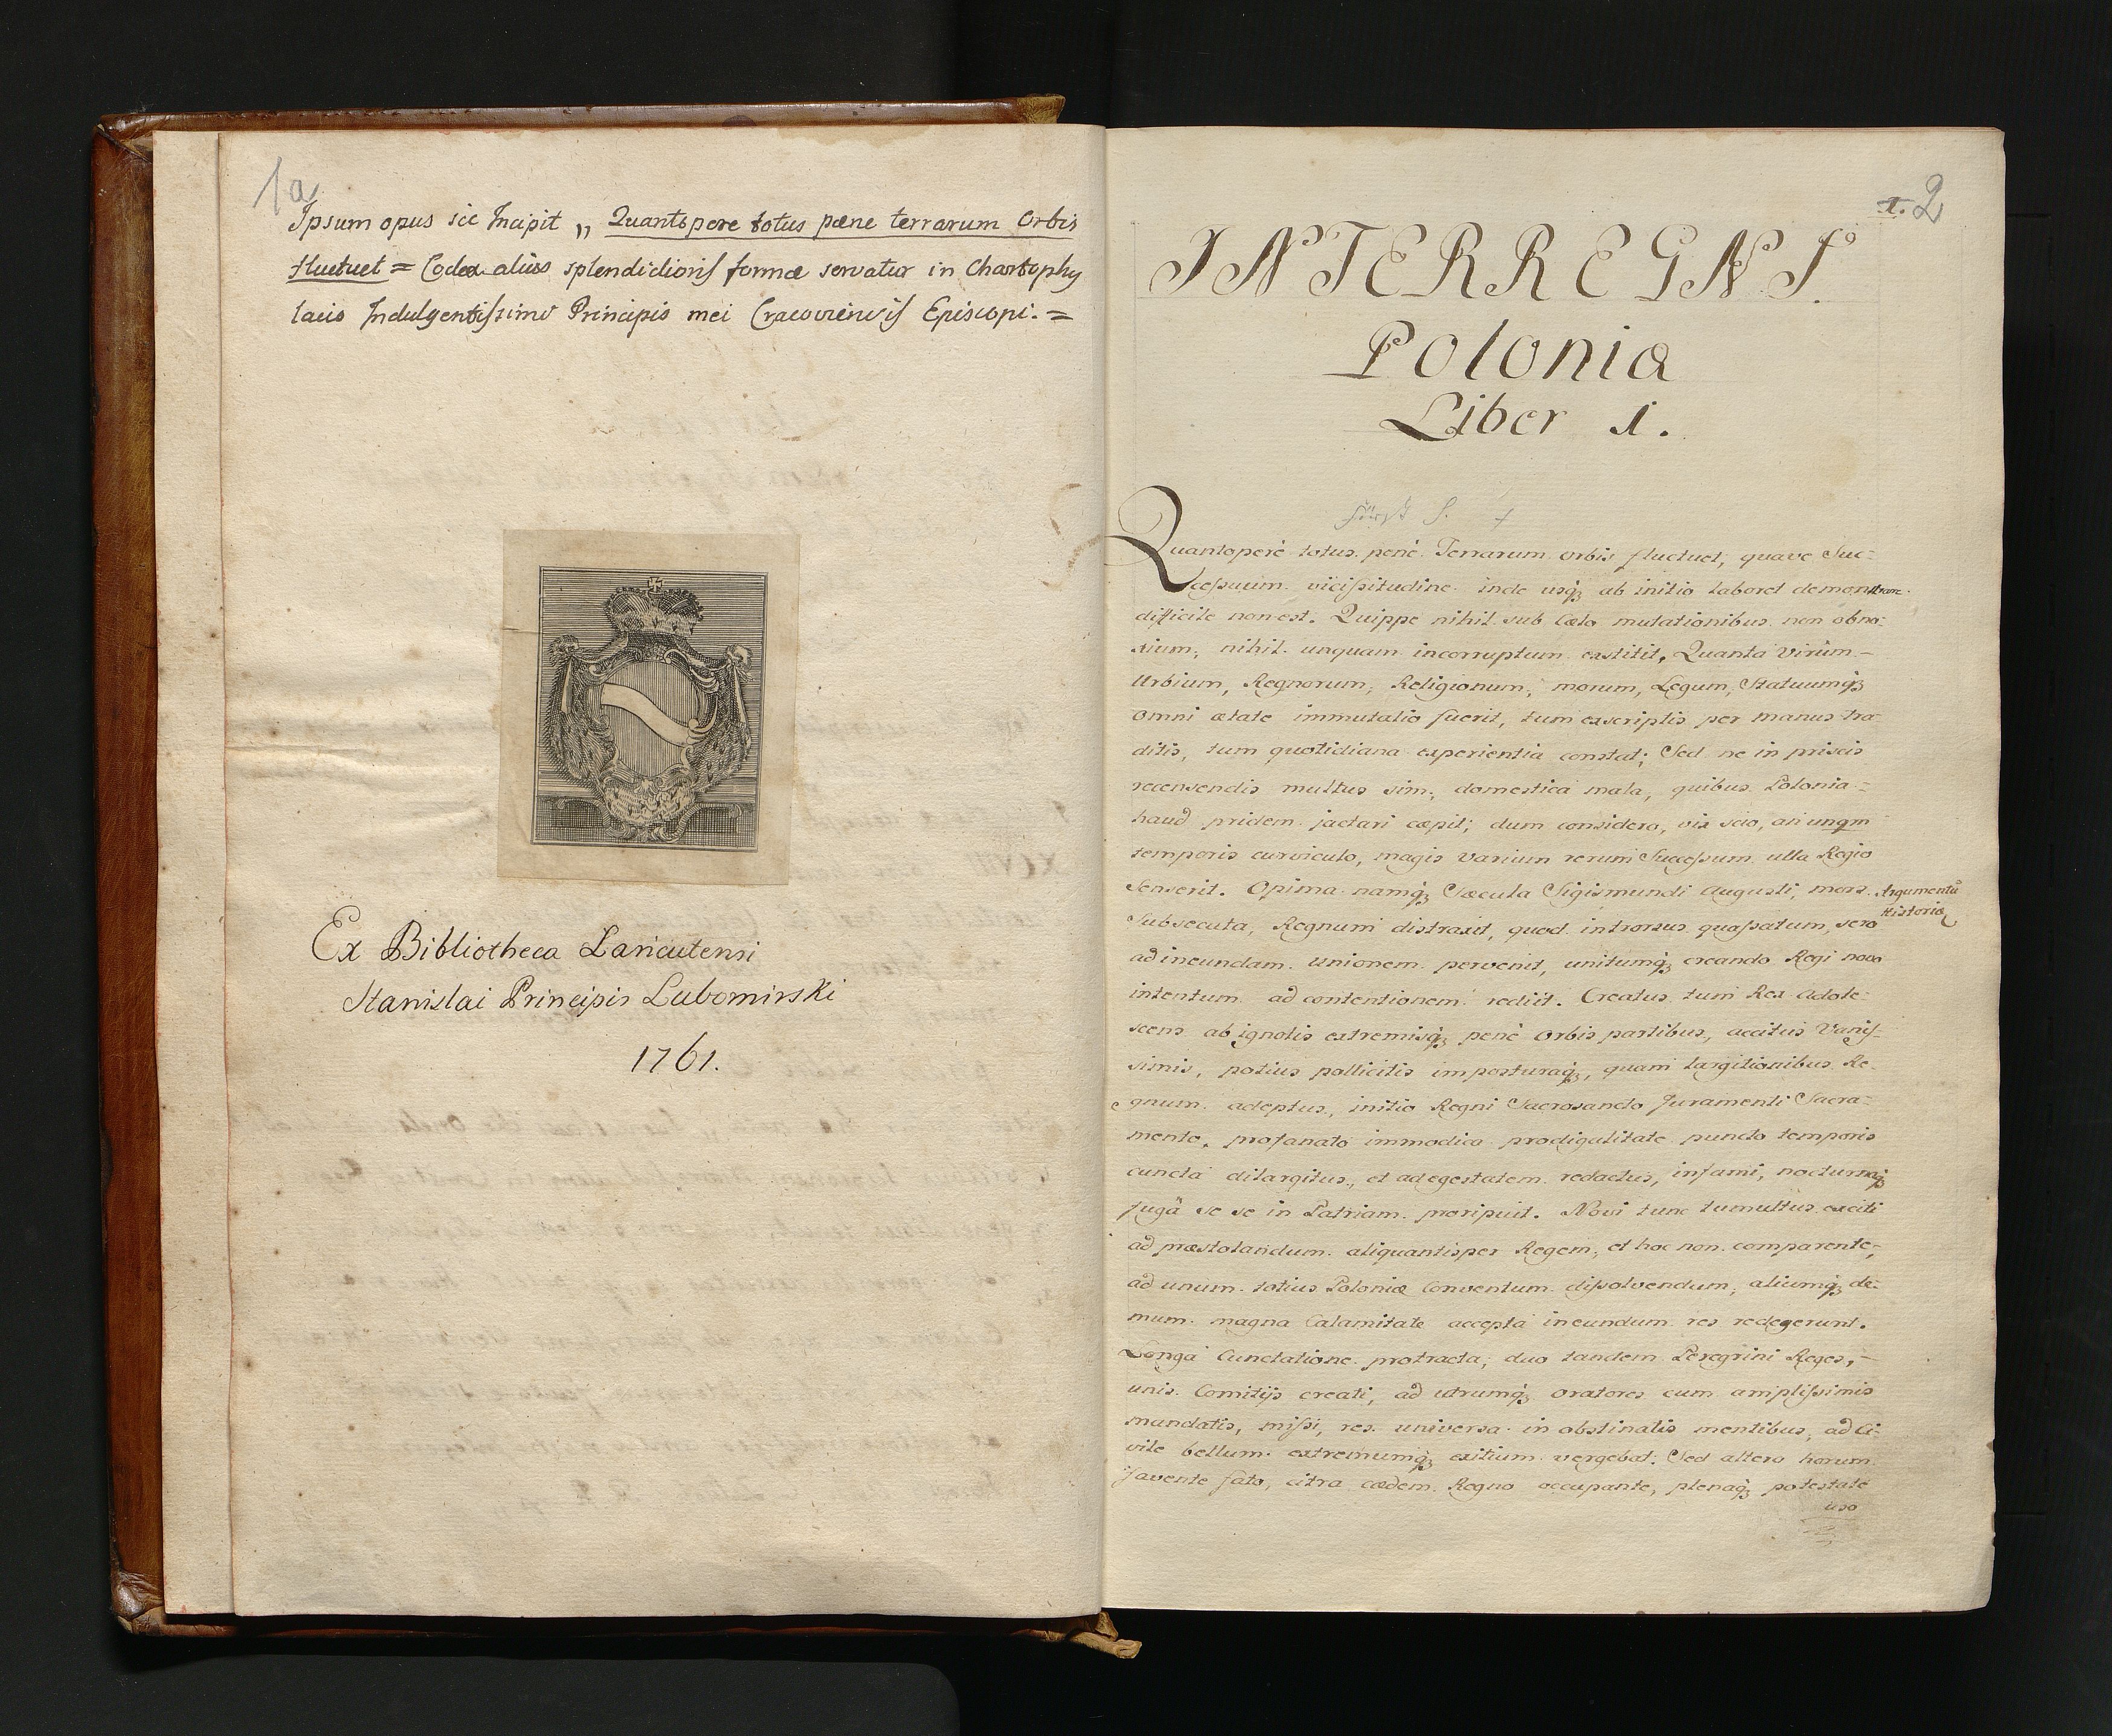 1a
Ipsum opus sic Incipit „ Quantopere totus pæne terrarum Orbis
fluctuet = Codex alius splendidioris formæ servatur in Chartophy
lacio Indulgentissimi Principis mei Cracoviensis Episcopi. =
Ex Bibliotheca Lancutensi
Stanislai Principis Lubomirski
1761.
1. 2
INTERREGNI
Polonia
Liber 1.
Quantoperè totus penè Terrarum orbis fluctuet, quave Suc=
cessuum vicissitudine inde usq; ab initio laboret demonstrare
difficile non est. Quippe nihil sub Cœlo mutationibus non obno=
xium, nihil unquam incorruptum exstitit, Quanta Virûm
Urbium, Regnorum, Religionum, morum, Legum, Statuumq;
omni ætate immutatio fuerit, tum exscriptis per manus tra=
ditis, tum quotidiana experientia constat; Sed ne in priscis
recensendis multus sim, domestica mala, quibus Polonia
haud pridem jactari cœpit; dum considero, vix scio, an unqm
temporis curriculo, magis varium rerum Successum ulla Regio
Senserit. Opima namq; Sæcula Sigismundi Augusti, mors
Argumentũ
Historiæ
Subsecuta, Regnum distraxit, quod introrsus quassatum, sero
ad ineundam Unionem pervenit, unitumq; creando Regi novo
intentum ad contentionem rediit. Creatus tum Rex Adole=
scens ab ignotis extremisq; penè Orbis partibus, accitus Vanis=
simis, potius pollicitis imposturaq;, quam largitionibus Re=
gnum adeptus, initio Regni Sacrosancto Juramenti Sacra=
mento, profanato immodica prodigalitate puncto temporis
cuncta dilargitus, et ad egestatem redactus, infami, nocturnaq;
fugâ se se in Patriam proripuit. Novi tunc tumultus exciti
ad præstolandum aliquantisper Regem, et hoc non comparente,
ad unum totius Poloniæ Conventum dissolvendum, aliumq; de=
mum magna Calamitate acceptâ ineundum res redegerunt.
Longa Cunctatione protracta, duo tandem Peregrini Reges,
unis Comitijs creati, ad utrumq; Oratores cum amplissimis
mandatis, missi, res universa in obstinatis mentibus, ad Ci=
vile bellum extremumq; exitium vergebat. Sed altero horum
favente fato, citra cædem Regno occupante, plenaq; potestate
uso